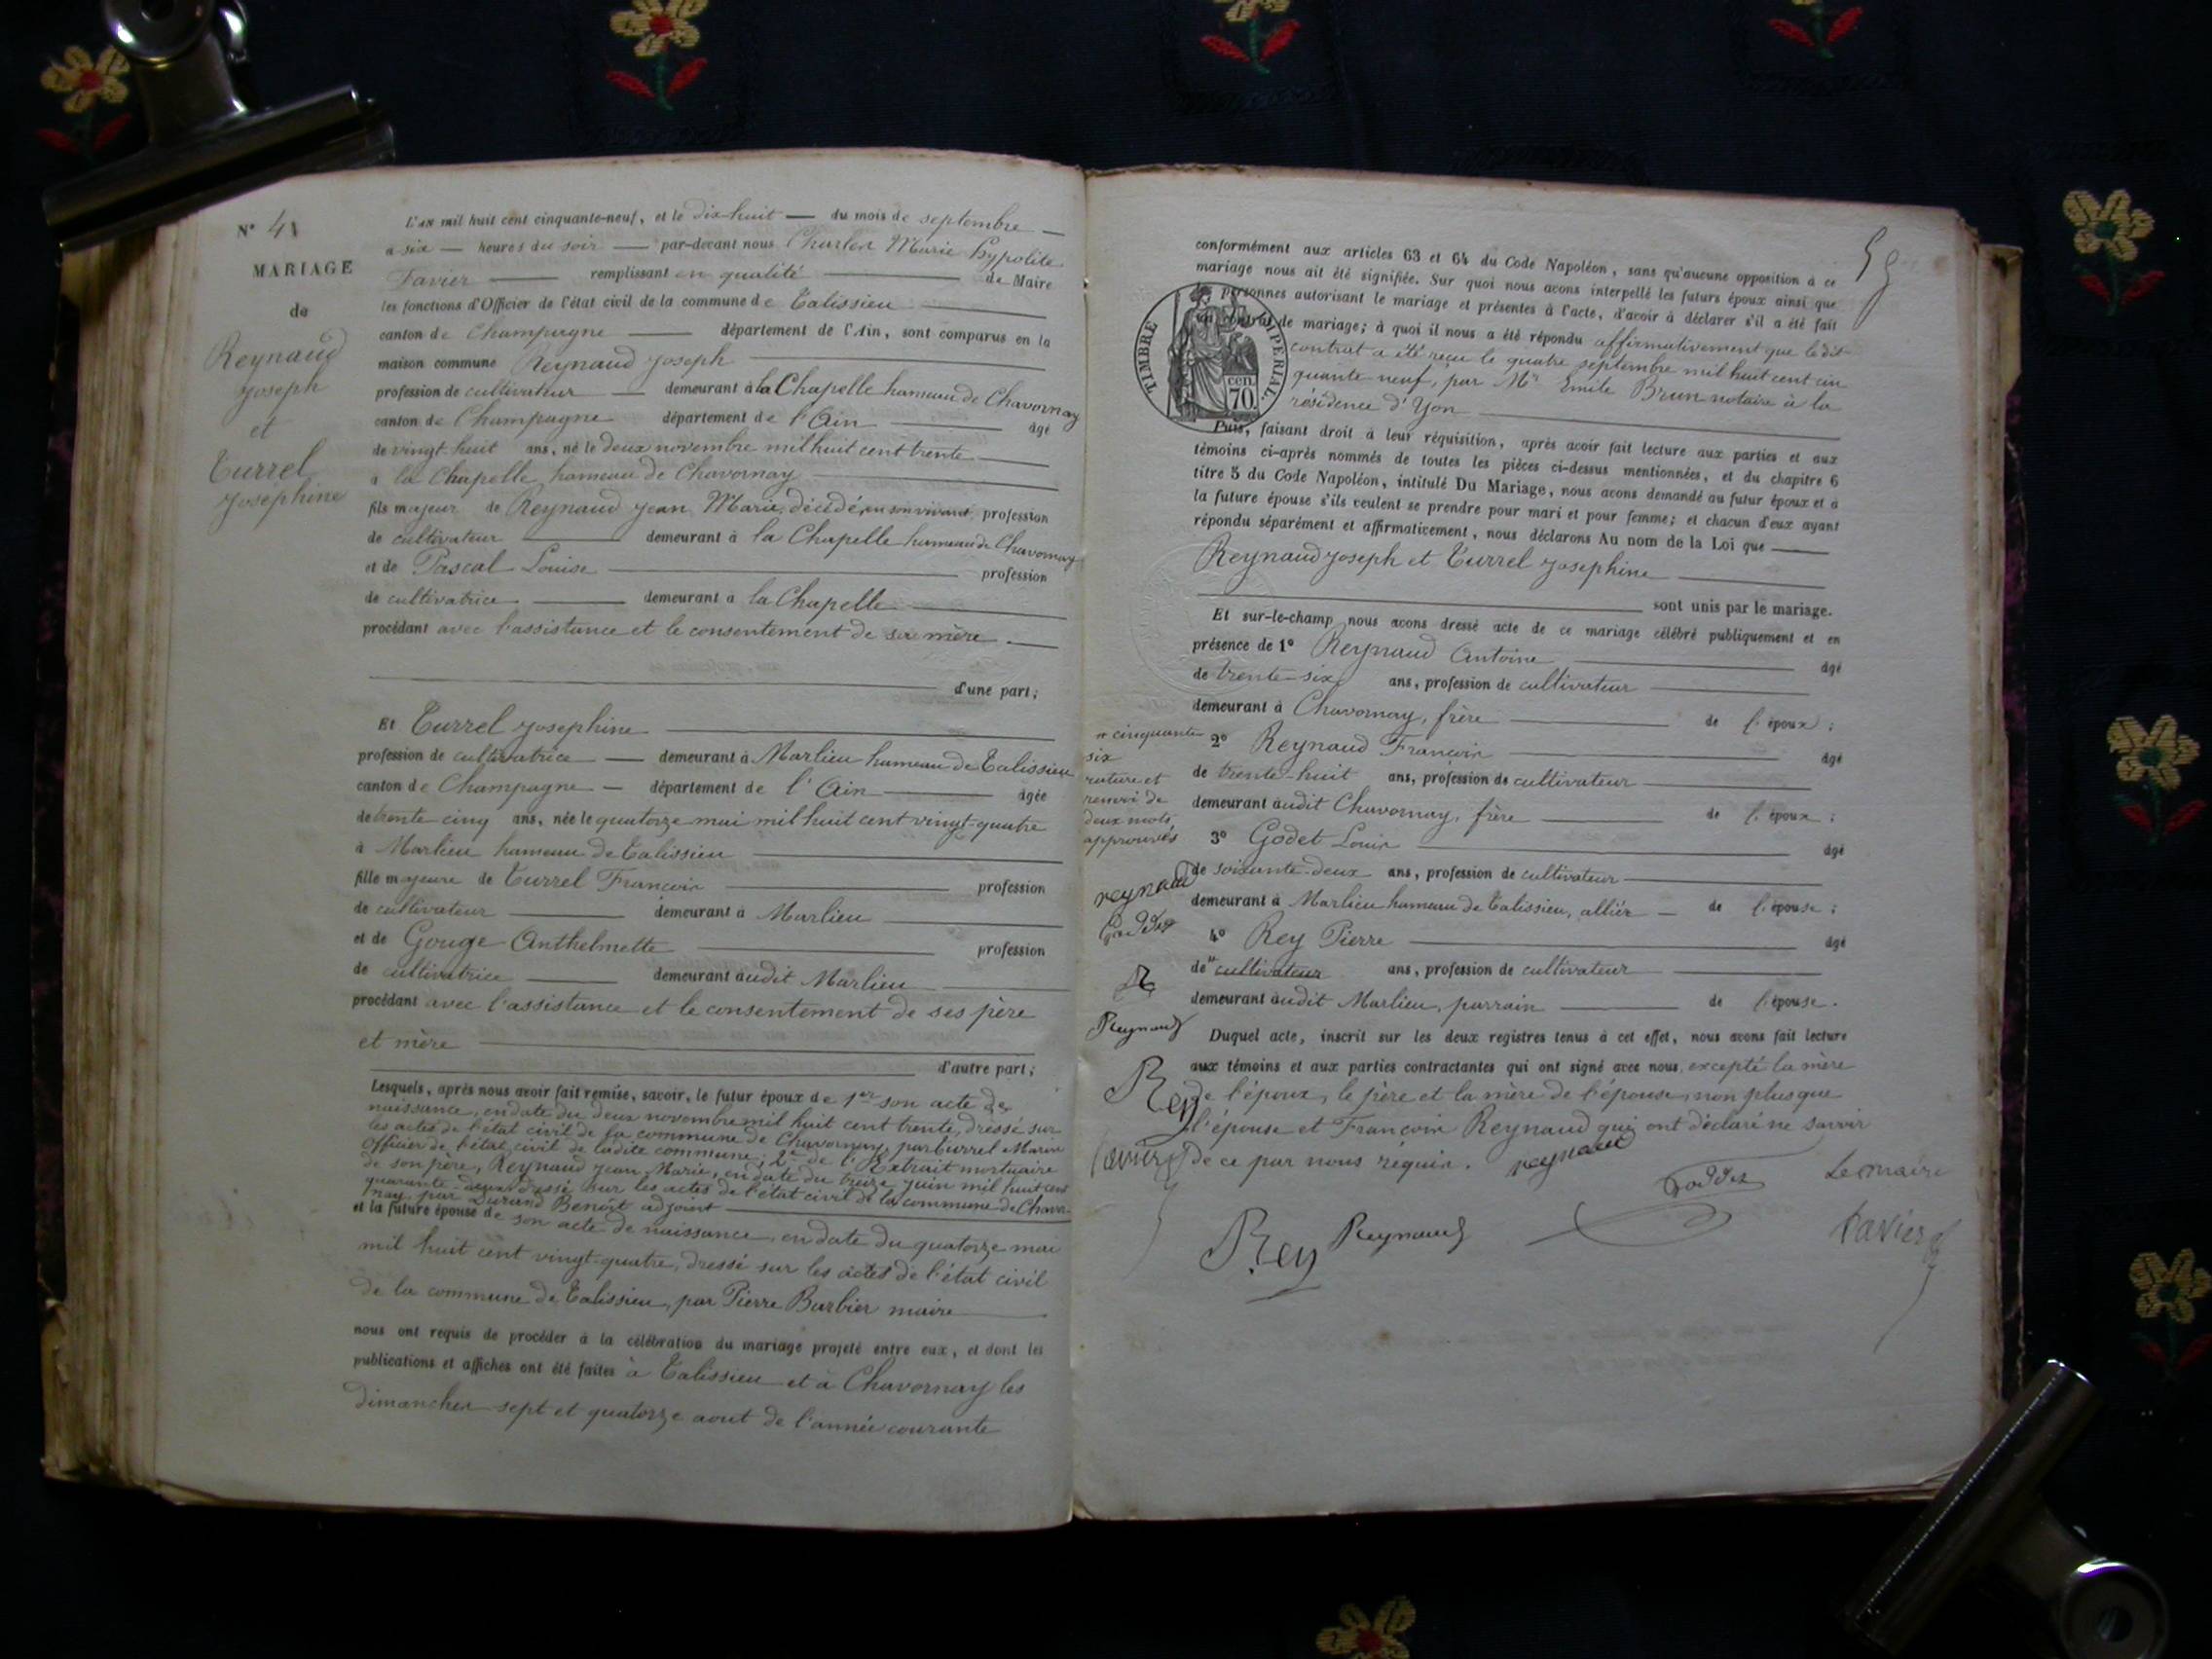 N° 4
MARIAGE
de
Reynaud
Joseph
et
Turrel
Josephine
L'AN mil huit cent cinquante-neuf, et le dix-huit du mois de septembre
a six heures du soir par-devant nous Charles Marie Hypolite
Favier remplissant en qualité de Maire
les fonctions d'Officier de l'état civil de la commune de Talissieu
canton de Champagne département de l'Ain, sont comparus en la
maison commune Reynaud Joseph
profession de cultivateur demeurant à la Chapelle hameau de Chavornay
canton de Champagne département de l'Ain âgé
de vingt huit ans, né le deux novembre mil huit cent trente
à la Chapelle hameau de Chavornay
fils majeur de Reynaud Jean Marie, décédé, en son vivant, profession
de cultivateur demeurant à la Chapelle hameau de Chavornay
et de Pascal Louise profession
de cultivatrice demeurant à la Chapelle
procédant avec l'assistance et le consentement de sa mère
d'une part;
Et Turrel Josephine
profession de cultivatrice demeurant à Marlieu hameau de Talissieu
canton de Champagne département de l'Ain âgée
de trente cinq ans, née le quatorze mai mil huit cent vingt-quatre
à Marlieu hameau de Talissieu
fille majeure de Turrel François profession
de cultivateur demeurant à Marlieu
et de Gouge Anthelmette profession
de cultivatrice demeurant audit Marlieu
procédant avec l'assistance et le consentement de ses père
et mère
d'autre part;
Lesquels, après nous avoir fait remise, savoir, le futur époux de 1er son acte de
naissance, en date du deux novembre mil huit cent trente, dressé sur
les actes de l'état civil de la commune de Chavornay, par Turrel Marin
Officier de l'état civil de ladite commune; 2e de l'Extrait mortuaire
de son père, Reynaud Jean Marie, en date du treize juin mil huit cent
quarante-deux dressé sur les actes de l'état civil de la commune de Chavor-
nay, par Durand Benoît adjoint
et la future épouse de son acte de naissance, en date du quatorze mai
mil huit cent vingt-quatre, dressé sur les actes de l'état civil
de la commune de Talissieu, par Pierre Barbier maire
nous ont requis de procéder à la célébration du mariage projeté entre eux, et dont les
publications et affiches ont été faites à Talissieu et à Chavornay les
dimanches sept et quatorze aout de l'année courante
conformément aux articles 63 et 64 du Code Napoléon, sans qu'aucune opposition à ce
mariage nous ait été signifiée. Sur quoi nous avons interpellé les futurs époux ainsi que
personnes autorisant le mariage et présentes à l'acte, d'avoir à déclarer s'il a été fait
un contrat de mariage; à quoi il nous a été répondu affirmativement que ledit
contrat a été reçu le quatre septembre mil huit cent cin
quante neuf, par Mr Emile Brun notaire à la
résidence d'Yon
TIMBRE IMPERIAL.
cen.
70
Puis, faisant droit à leur réquisition, après avoir fait lecture aux parties et aux
témoins ci-après nommés de toutes les pièces ci-dessus mentionnées, et du chapitre 6
titre 5 du Code Napoléon, intitulé Du Mariage, nous avons demandé au futur époux et à
la future épouse s'ils veulent se prendre pour mari et pour femme; et chacun d'eux ayant
répondu séparément et affirmativement, nous déclarons Au nom de la Loi que
Reynaud Joseph et Turrel Josephine
sont unis par le mariage.
Et sur-le-champ nous avons dressé acte de ce mariage célébré publiquement et en
présence de 1° Reynaud Antoine âgé
de trente-six ans, profession de cultivateur
demeurant à Chavornay, frère de l'époux;
2° Reynaud François âgé
de trente-huit ans, profession de cultivateur
demeurant audit Chavornay, frère de l'époux;
3° Godet Louis âgé
de soixante-deux ans, profession de cultivateur
demeurant à Marlieu hameau de Talissieu, alliér de l'épouse;
4° Rey Pierre âgé
de cultivateur ans, profession de cultivateur
demeurant audit Marlieu, parrain de l'épouse.
cinquante
six
rature et
renvoi de
deux mots
approuvés
reynaud
Goddet
R
Reynaud
Rey
Favier
Duquel acte, inscrit sur les deux registres tenus à cet effet, nous avons fait lecture
aux témoins et aux parties contractantes qui ont signé avec nous, excepté la mère
de l'époux, le père et la mère de l'épouse, non plus que
l'épouse et François Reynaud qui ont déclaré ne savoir
de ce par nous réquis. reynaud
Goddet Le maire
Rey Reynaud Favier